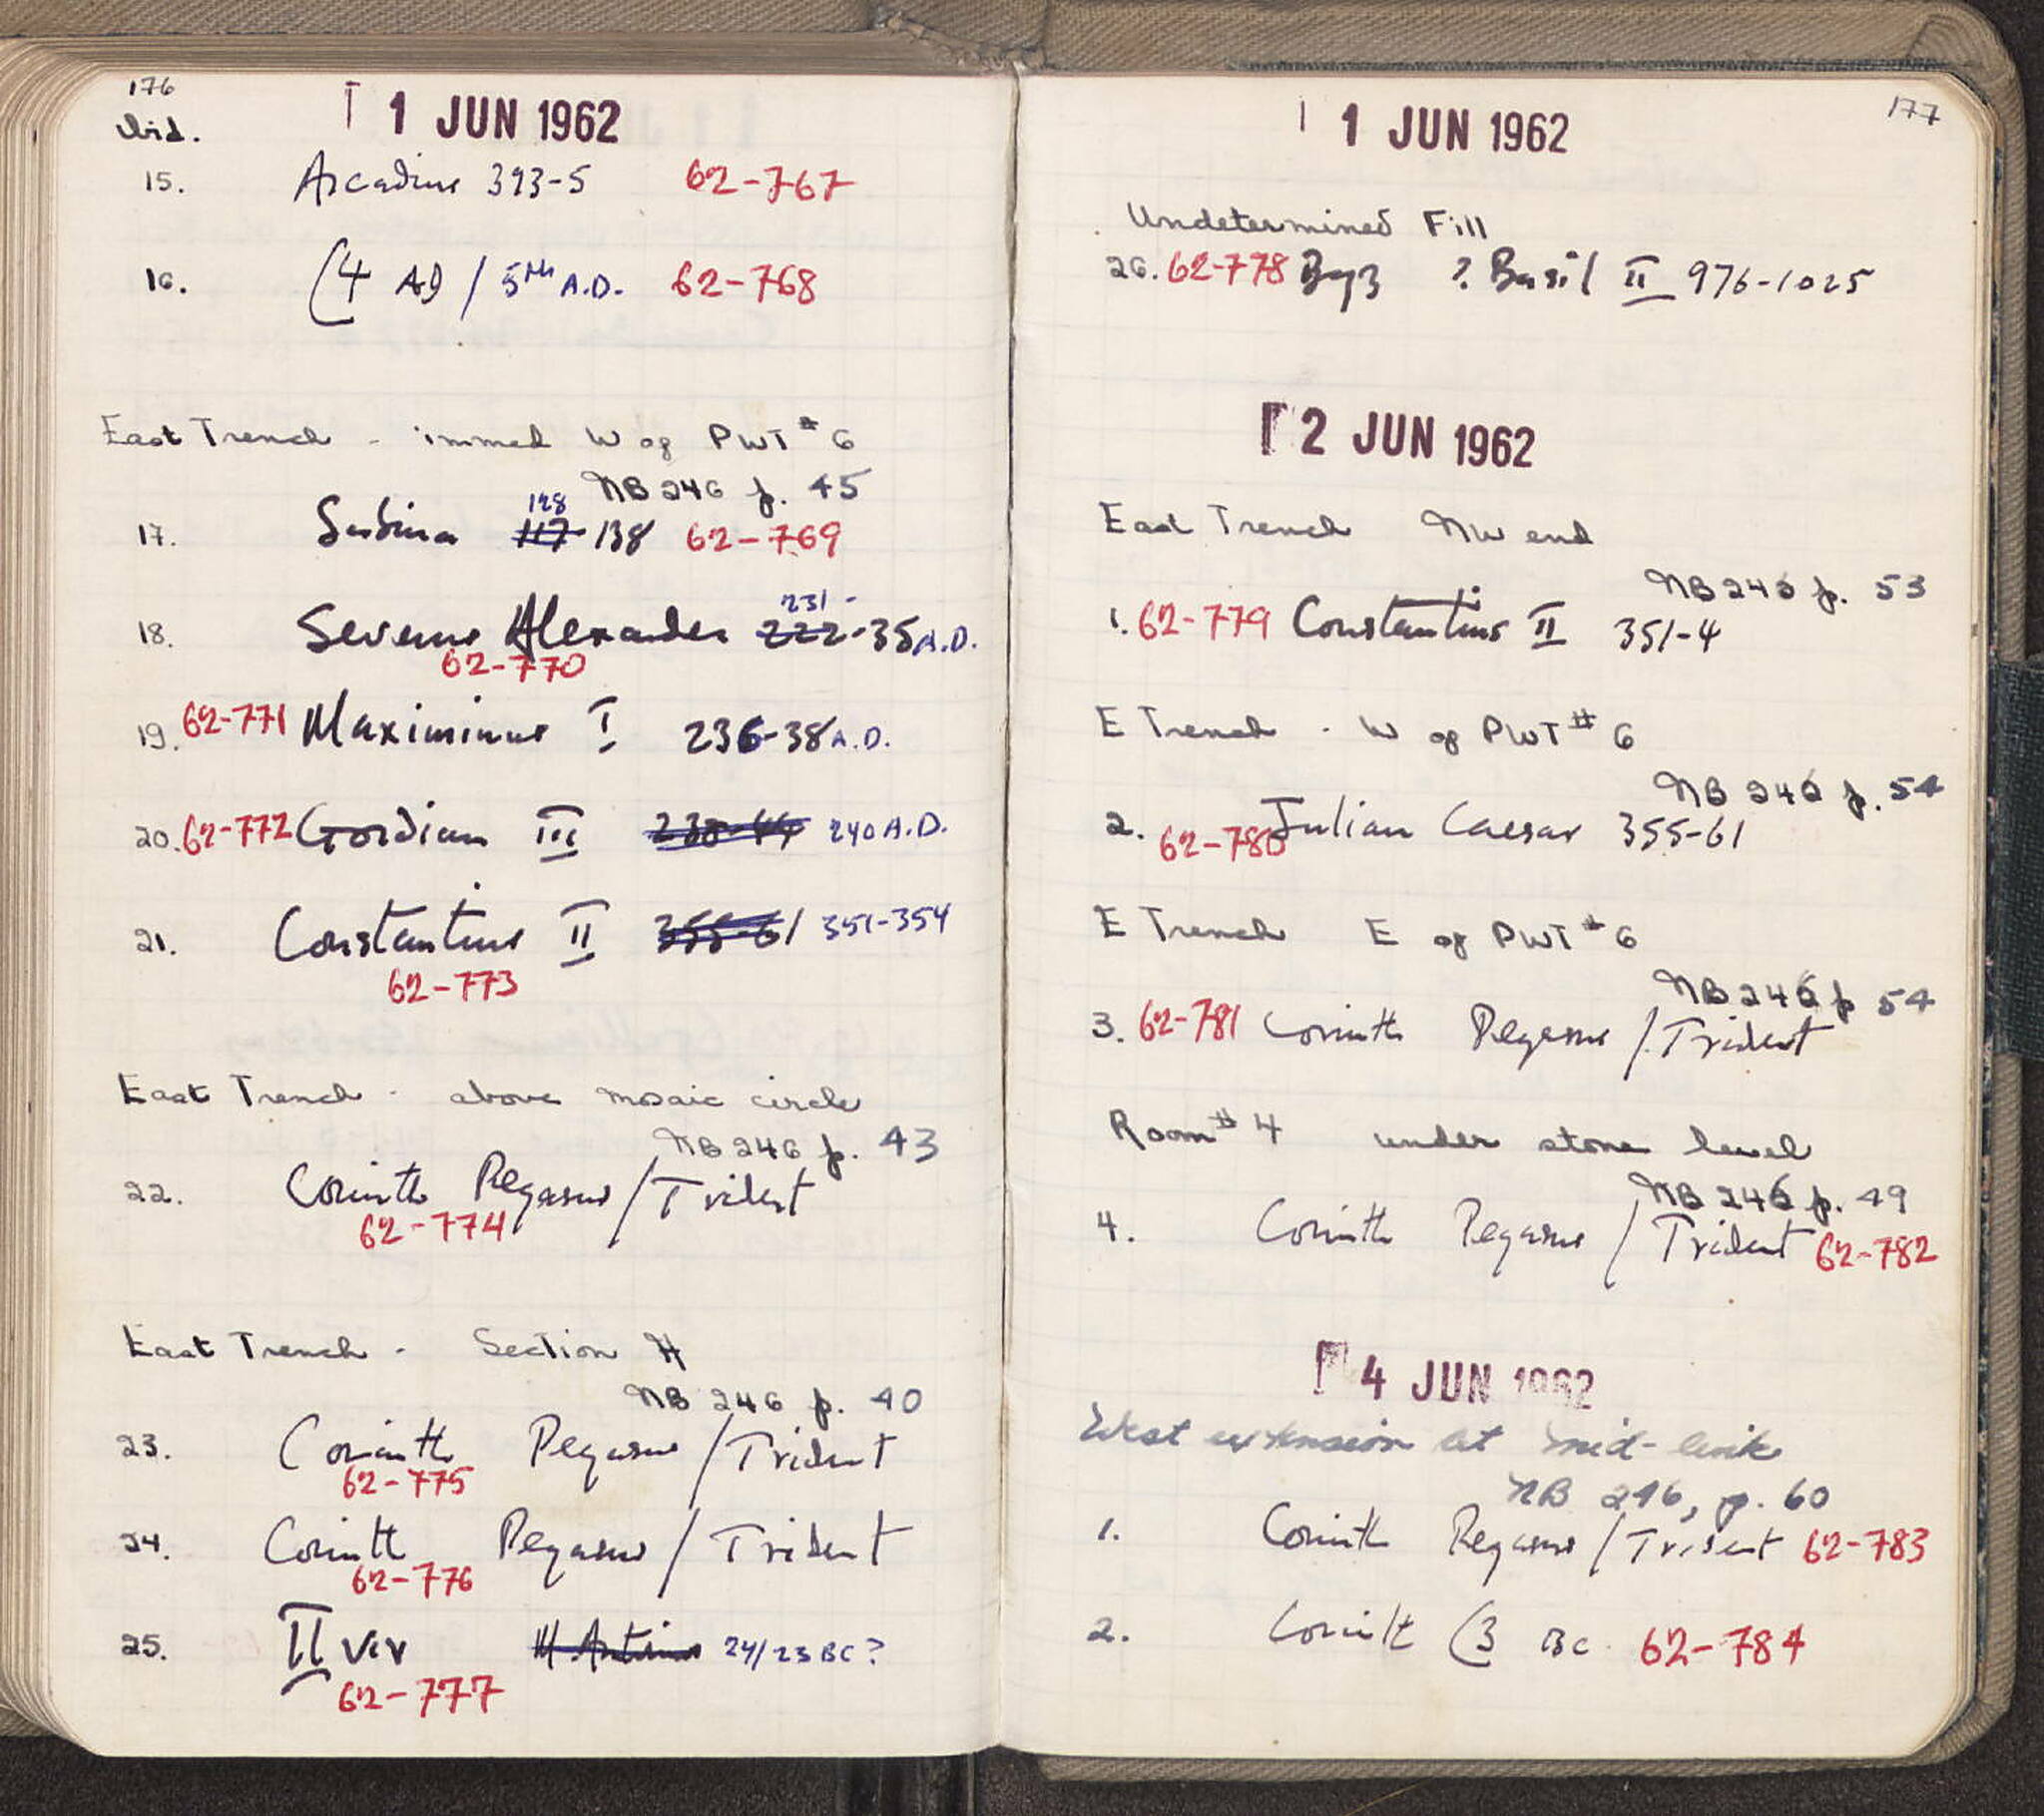 176
ibid.
1 JUN 1962
15. Arcadius 393-5 62-767
16. (4 AD / 5th A.D. 62-768
East Trench - immed W of PWT # 6
NB 246 p. 45
128
17. Sabina 117-138 62-769
231-
18. Severus Alexander 222-35 A.D.
62-770
19. 62-771 Maximinus I 236-38 A.D.
20. 62-772 Gordian III 238-44 240 A.D.
21. Constantius II 355-61 351-354
62-773
East Trench - above mosaic circle
NB 246 p. 43
22. Corinth Pegasus / Trident
62-774
East Trench - Section H
NB 246 p. 40
23. Corinth Pegasus / Trident
62-775
24. Corinth Pegasus / Trident
62-776
25. II vir M. Antonius 24/23 BC ?
62-777
177
1 JUN 1962
Undetermined Fill
26. 62-778 Byz ? Basil II 976-1025
2 JUN 1962
East Trench NW end
NB 246 p. 53
1. 62-779 Constantius II 351-4
E Trench - W of PWT # 6
NB 246 p. 54
2. 62-780 Julian Caesar 355-61
E Trench E of PWT # 6
NB 246 p 54
3. 62-781 Corinth Pegasus / Trident
Room # 4 under stone level
NB 246 p. 49
4. Corinth Pegasus / Trident 62-782
4 JUN 1962
West extension at mid-link
NB 246, p. 60
1. Corinth Pegasus / Trident 62-783
2. Corinth (3 BC 62-784